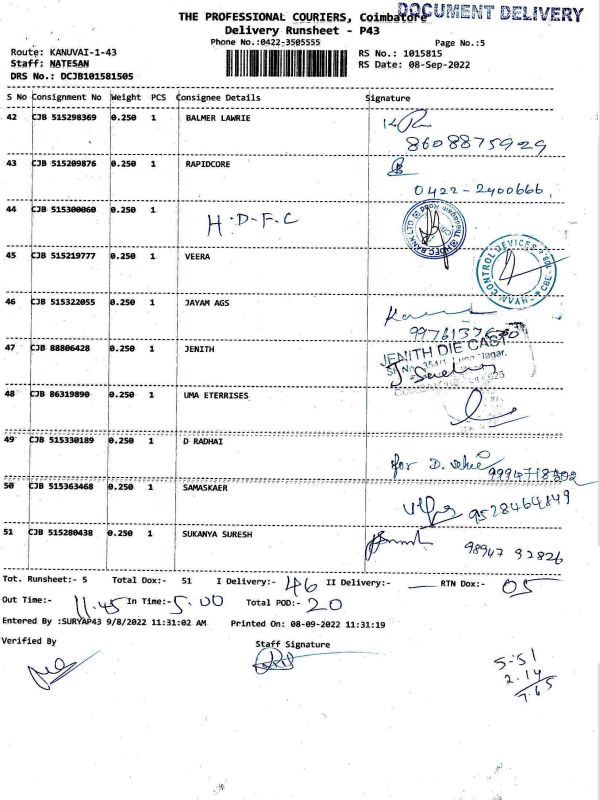 THE PROFESSIONAL COURIERS, Coimbatore
DOCUMENT DELIVERY
Delivery Runsheet - P43
Phone No.:0422-3505555
Page No.:5
Route: KANUVAI-1-43
RS No.: 1015815
Staff: NATESAN
RS Date: 08-Sep-2022
DRS No.: DCJB101581505
S No Consignment No Weight PCS Consignee Details Signature
42 CJB 515298369 0.250 1 BALMER LAWRIE
8608875929
43 CJB 515209876 0.250 1 RAPIDCORE
0422-2400666
44 CJB 515300060 0.250 1 H.D.F.C
HDFC BANK LTD
45 CJB 515219777 0.250 1 VEERA
CONTROL DEVICES
46 CJB 515322055 0.250 1 JAYAM AGS
47 CJB 88806428 0.250 1 JENITH
JENITH DIE CAST
48 CJB 86319890 0.250 1 UMA ETERRISES
49 CJB 515330189 0.250 1 D RADHAI
for D.
50 CJB 515363468 0.250 1 SAMASKAER
9528464849
51 CJB 515280438 0.250 1 SUKANYA SURESH
98947 92826
Tot. Runsheet:- 5 Total Dox:- 51 I Delivery:- 46 II Delivery:- RTN Dox:- 05
Out Time:- 11.45 In Time:- 5.00 Total POD:- 20
Entered By :SURYAP43 9/8/2022 11:31:02 AM Printed On: 08-09-2022 11:31:19
Verified By Staff Signature
5.51
2.14
7.65